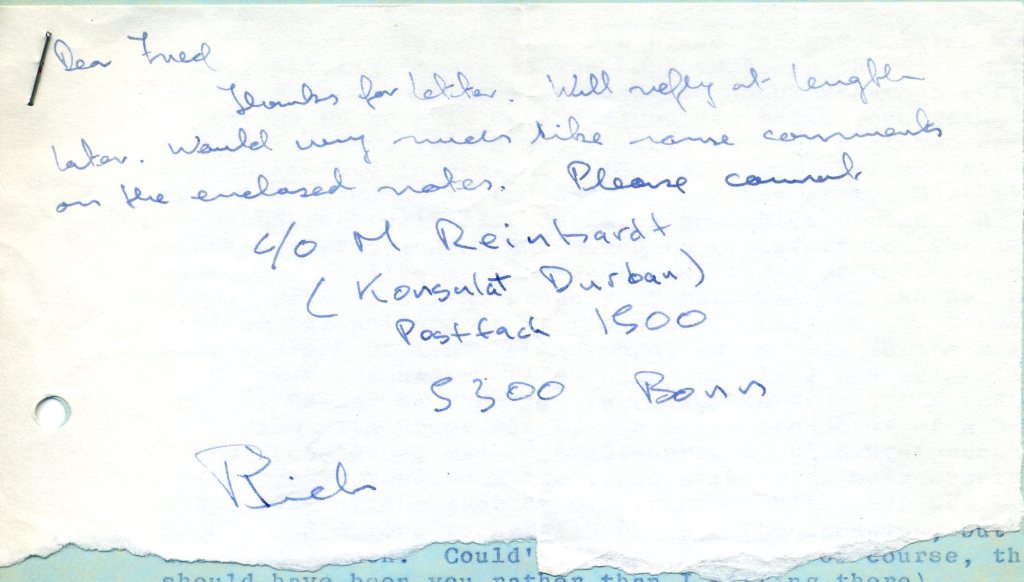 Dear Fred
Thanks for letter. Will reply at length
later. Would very much like some comments
on the enclosed notes. Please
c/o M Reinhardt
(Konsulat Durban)
Postfach 1500
5300 Bonn
Rich
but
Could' of course, th
should have been you rather than I going there)